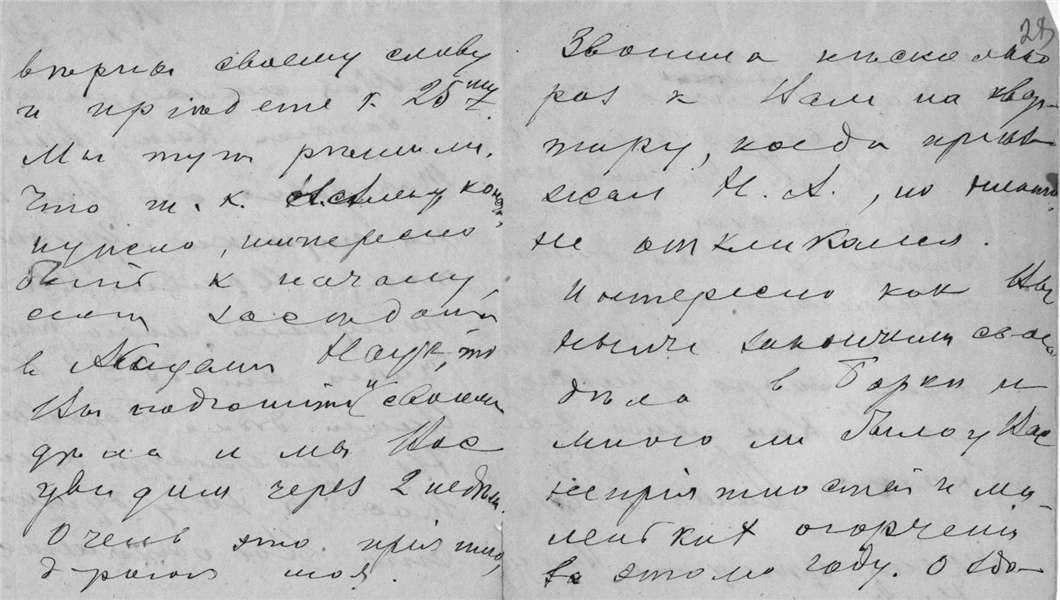 вѣрны своему слову
и пріѣдете к 25му.
Мы тут рѣшили,
что т. к.
нужно, интересно
быть к началу
заседаній
в Академіи Наук, то
Вы подгоните своими
дѣла и мы Вас
увидим через 2 недѣли.
Очень это пріятно,
дорогая моя.
28
Звонила нѣсколько
раз к Вам на квар-
тиру, когда пріѣз-
жал Н. А., но никто
не откликался.
Интересно как Вы
нынче закончили свои
дѣла в Борки и
много ли было у Вас
непріятностей и ма-
леньких огорченій
в этом году. О здо-